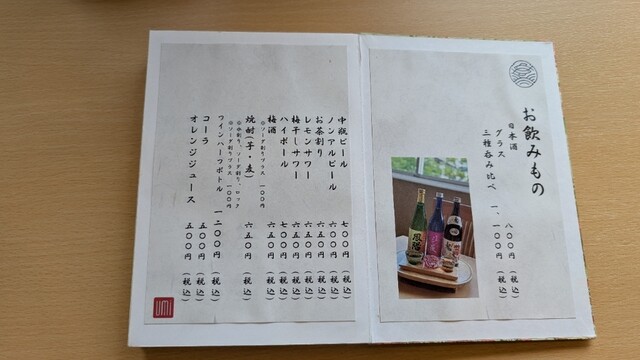 お飲みもの
日本酒
グラス 八〇〇円(税込)
三種呑み比べ 一、一〇〇円(税込)
中瓶ビール 七〇〇円(税込)
ノンアルビール 六〇〇円(税込)
お茶割り 六五〇円(税込)
レモンサワー 六五〇円(税込)
梅干しサワー 六五〇円(税込)
ハイボール 七〇〇円(税込)
梅酒 六五〇円(税込)
◎ソーダ割りプラス 一〇〇円
焼酎(芋・麦) 六五〇円(税込)
◎水割り、ソーダ割り、ロック
◎ソーダ割りプラス 一〇〇円
ワインハーフボトル 一二〇〇円(税込)
コーラ 五〇〇円(税込)
オレンジジュース 五〇〇円(税込)
umi